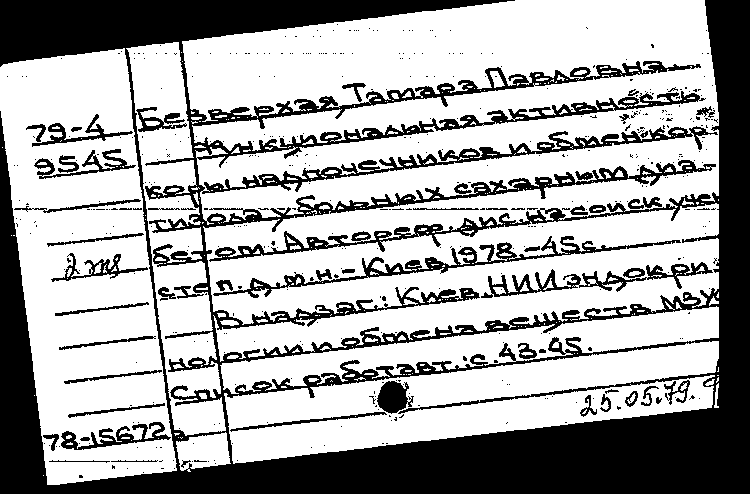 79-4 Безверхая, Тамара Павловна.
9545 Функциональная активность
коры надпочечников и обмен кор-
тизола у больных сахарным диа-
2 экз бетом: Автореф. дис. на соиск. учен
степ. д.м.н. - Киев, 1978. - 45с.
В надзаг.: Киев. НИИ эндокри-
нологии и обмена веществ МЗ
Список работ авт.: с. 43-45.
78-15672а 25.05.79.